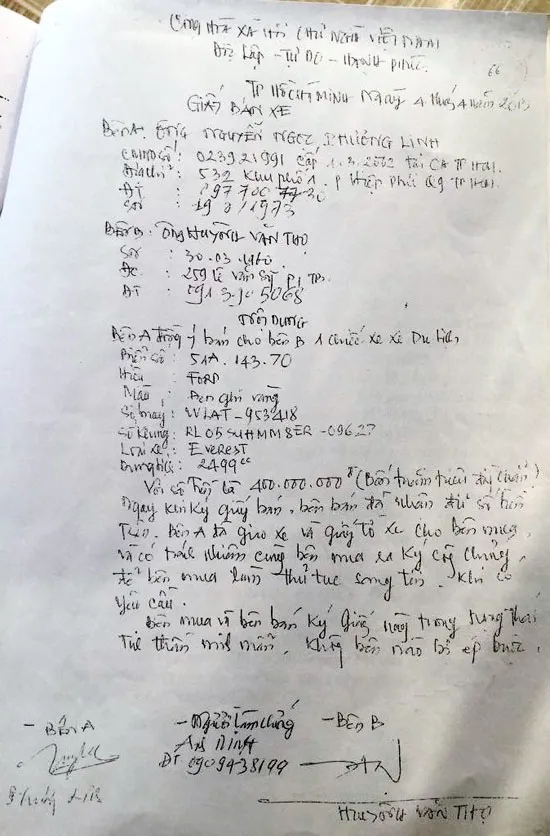 CỘNG HÒA XÃ HỘI CHỦ NGHĨA VIỆT NAM
Độc Lập - Tự Do - HẠNH PHÚC
66
TP HỒ CHÍ MINH Ngày 4 tháng 4 năm
GIẤY BÁN XE
BÊN A. ÔNG NGUYỄN NGỌC PHƯƠNG LINH
CMND số: 023921991 cấp 1.3.2002 tại CA TP HCM.
Địa chỉ: 532 Khu phố 1. P Hiệp Phú Q9 TP HCM.
ĐT :
SN : 1973
BÊN B. ÔNG HUỲNH VĂN THỌ
SN : 30.03.1960
ĐC : 259 Lê Văn Sỹ P1, TB.
ĐT :
NỘI DUNG
Bên A đồng ý bán cho bên B 1 chiếc xe xe Du lịch
Biển số : 51A.143.70
Hiệu : FORD
Màu : Đen ghi vàng
Số máy : WLAT-953418
Số khung: RL05SUHMM8ER-09627
Loại xe : EVEREST
Dung tích : 2499cc
Với số tiền là 400.000.000đ (Bốn trăm triệu đồng chẵn)
Ngay khi ký giấy bán, bên bán đã nhận đủ số tiền
trên. Bên A đã giao xe và giấy tờ xe cho bên mua,
và có trách nhiệm cùng bên mua ra ký công chứng,
để bên mua làm thủ tục sang tên. Khi có
yêu cầu.
Bên mua và bên bán ký giấy này trong trạng thái
tinh thần minh mẫn. Không bên nào bị ép buộc.
- BÊN A - Người làm chứng - BÊN B
An Bình
ĐT 0909438199
Phương Linh
HUỲNH VĂN THỌ